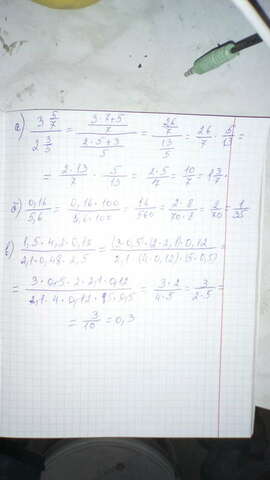 а) 3 5/7 / 2 3/5 = (3·7+5)/7 / (2·5+3)/5 = 26/7 / 13/5 = 26/7 · 5/13 =
= 2·13/7 · 5/13 = 2·5/7 = 10/7 = 1 3/7.
б) 0,16/5,6 = 0,16·100/5,6·100 = 16/560 = 2·8/70·8 = 2/70 = 1/35
в) 1,5·4,2·0,12/2,1·0,48·2,5 = (3·0,5)·(2·2,1)·0,12/2,1·(4·0,12)·(5·0,5) =
= 3·0,5·2·2,1·0,12/2,1·4·0,12·5·0,5 = 3·2/4·5 = 3/2·5 =
= 3/10 = 0,3